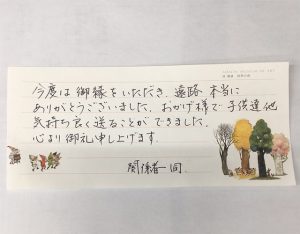 今度は御縁をいただき、遠路本当に
ありがとうございました。おかげ様で子供達他
気持ち良く送ることができました。
心より御礼申し上げます。
関係者一同